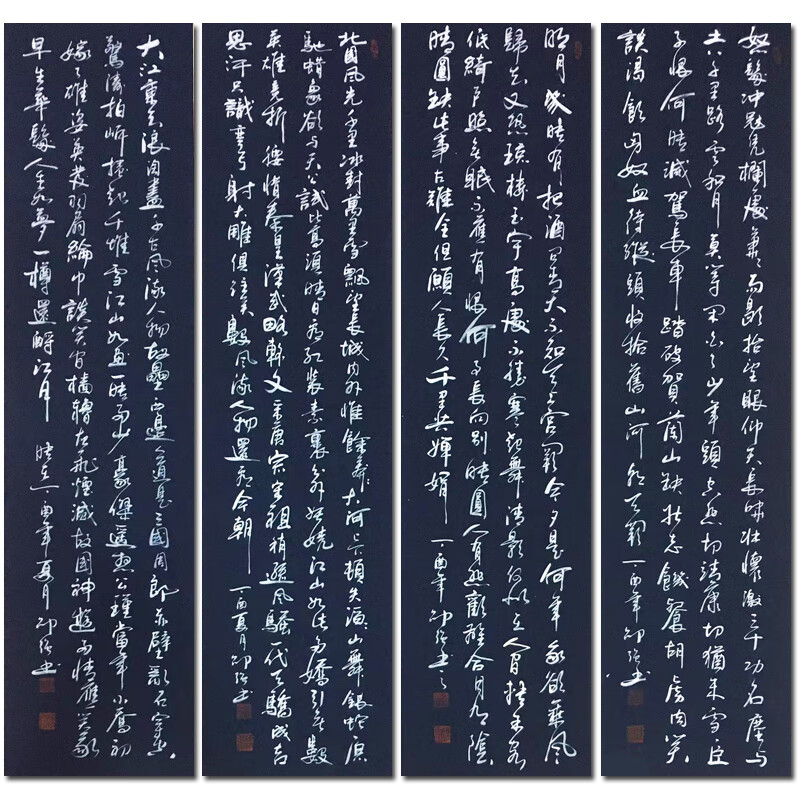 怒髮冲冠凭欄處蕭々雨歇抬望眼仰天長嘯壯懷激三千功名塵与
土八千里路雲和月莫等閑白了少年頭空悲切靖康切猶未雪臣
子恨何時滅駕長車踏破賀蘭山缺壯志飢餐胡虏肉笑
談渴飲匈奴血待從頭收拾舊山河朝天闕 丁酉年
明月幾時有把酒问青天不知天上宫闕今夕是何年我欲乘風
歸去又恐瓊樓玉宇高處不勝寒起舞清影何似在人间轉朱閣
低綺户照無眠不應有恨何事長向别時圓人有悲歡離合月有陰
晴圓缺此事古難全但願人長久千里共嬋娟 丁酉年
北國風光千里冰封萬里雪飄望長城内外惟餘莽々大河上下頓失滔々山舞銀蛇原
馳蜡象欲与天公試比高須晴日看红装素裹分外妖嬈江山如此多嬌引無數
英雄竞折腰惜秦皇漢武略輸文采唐宗宋祖稍遜風騷一代天驕成吉
思汗只識彎弓射大雕俱往矣數風流人物還看今朝 丁酉夏月
大江東去浪淘盡千古風流人物故壘西邊人道是三國周郎赤壁亂石穿空
驚濤拍岸捲起千堆雪江山如畫一時多少豪傑遥想公瑾當年小喬初
嫁了雄姿英發羽扇綸巾談笑间檣櫓灰飛煙滅故國神遊多情應笑我
早生華髮人生如夢一樽還酹江月 時在丁酉年夏月